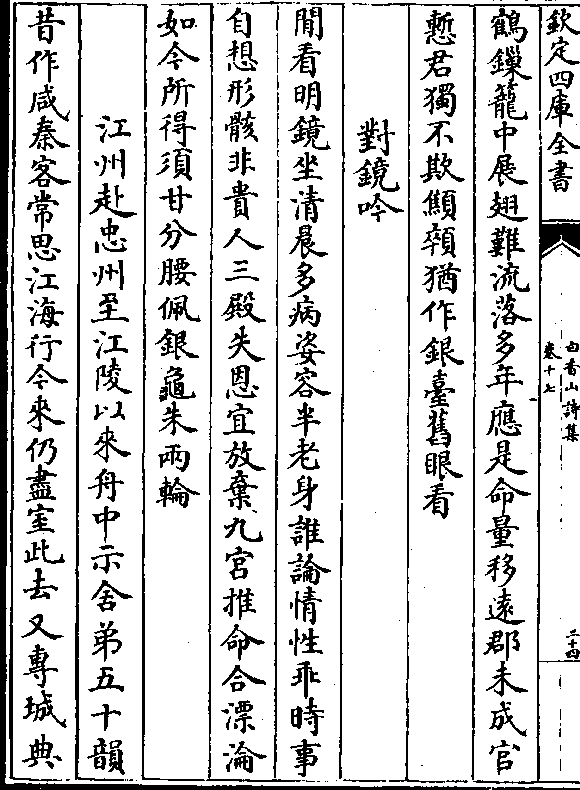 欽定四庫全書
白香山詩集
卷十七
二十四
鶴鏁籠中展翅難流落多年應是命量移逺郡未成官
慙君獨不欺顦顇猶作銀臺舊眼看
對鏡吟
閒看明鏡坐清晨多病姿容半老身誰論情性乖時事
自想形骸非貴人三殿失恩宜放棄九宫推命合漂淪
如今所得須甘分腰佩銀龜朱兩輪
江州赴忠州至江陵以來舟中示舍弟五十韻
昔作咸秦客常思江海行今來仍盡室此去又專城典